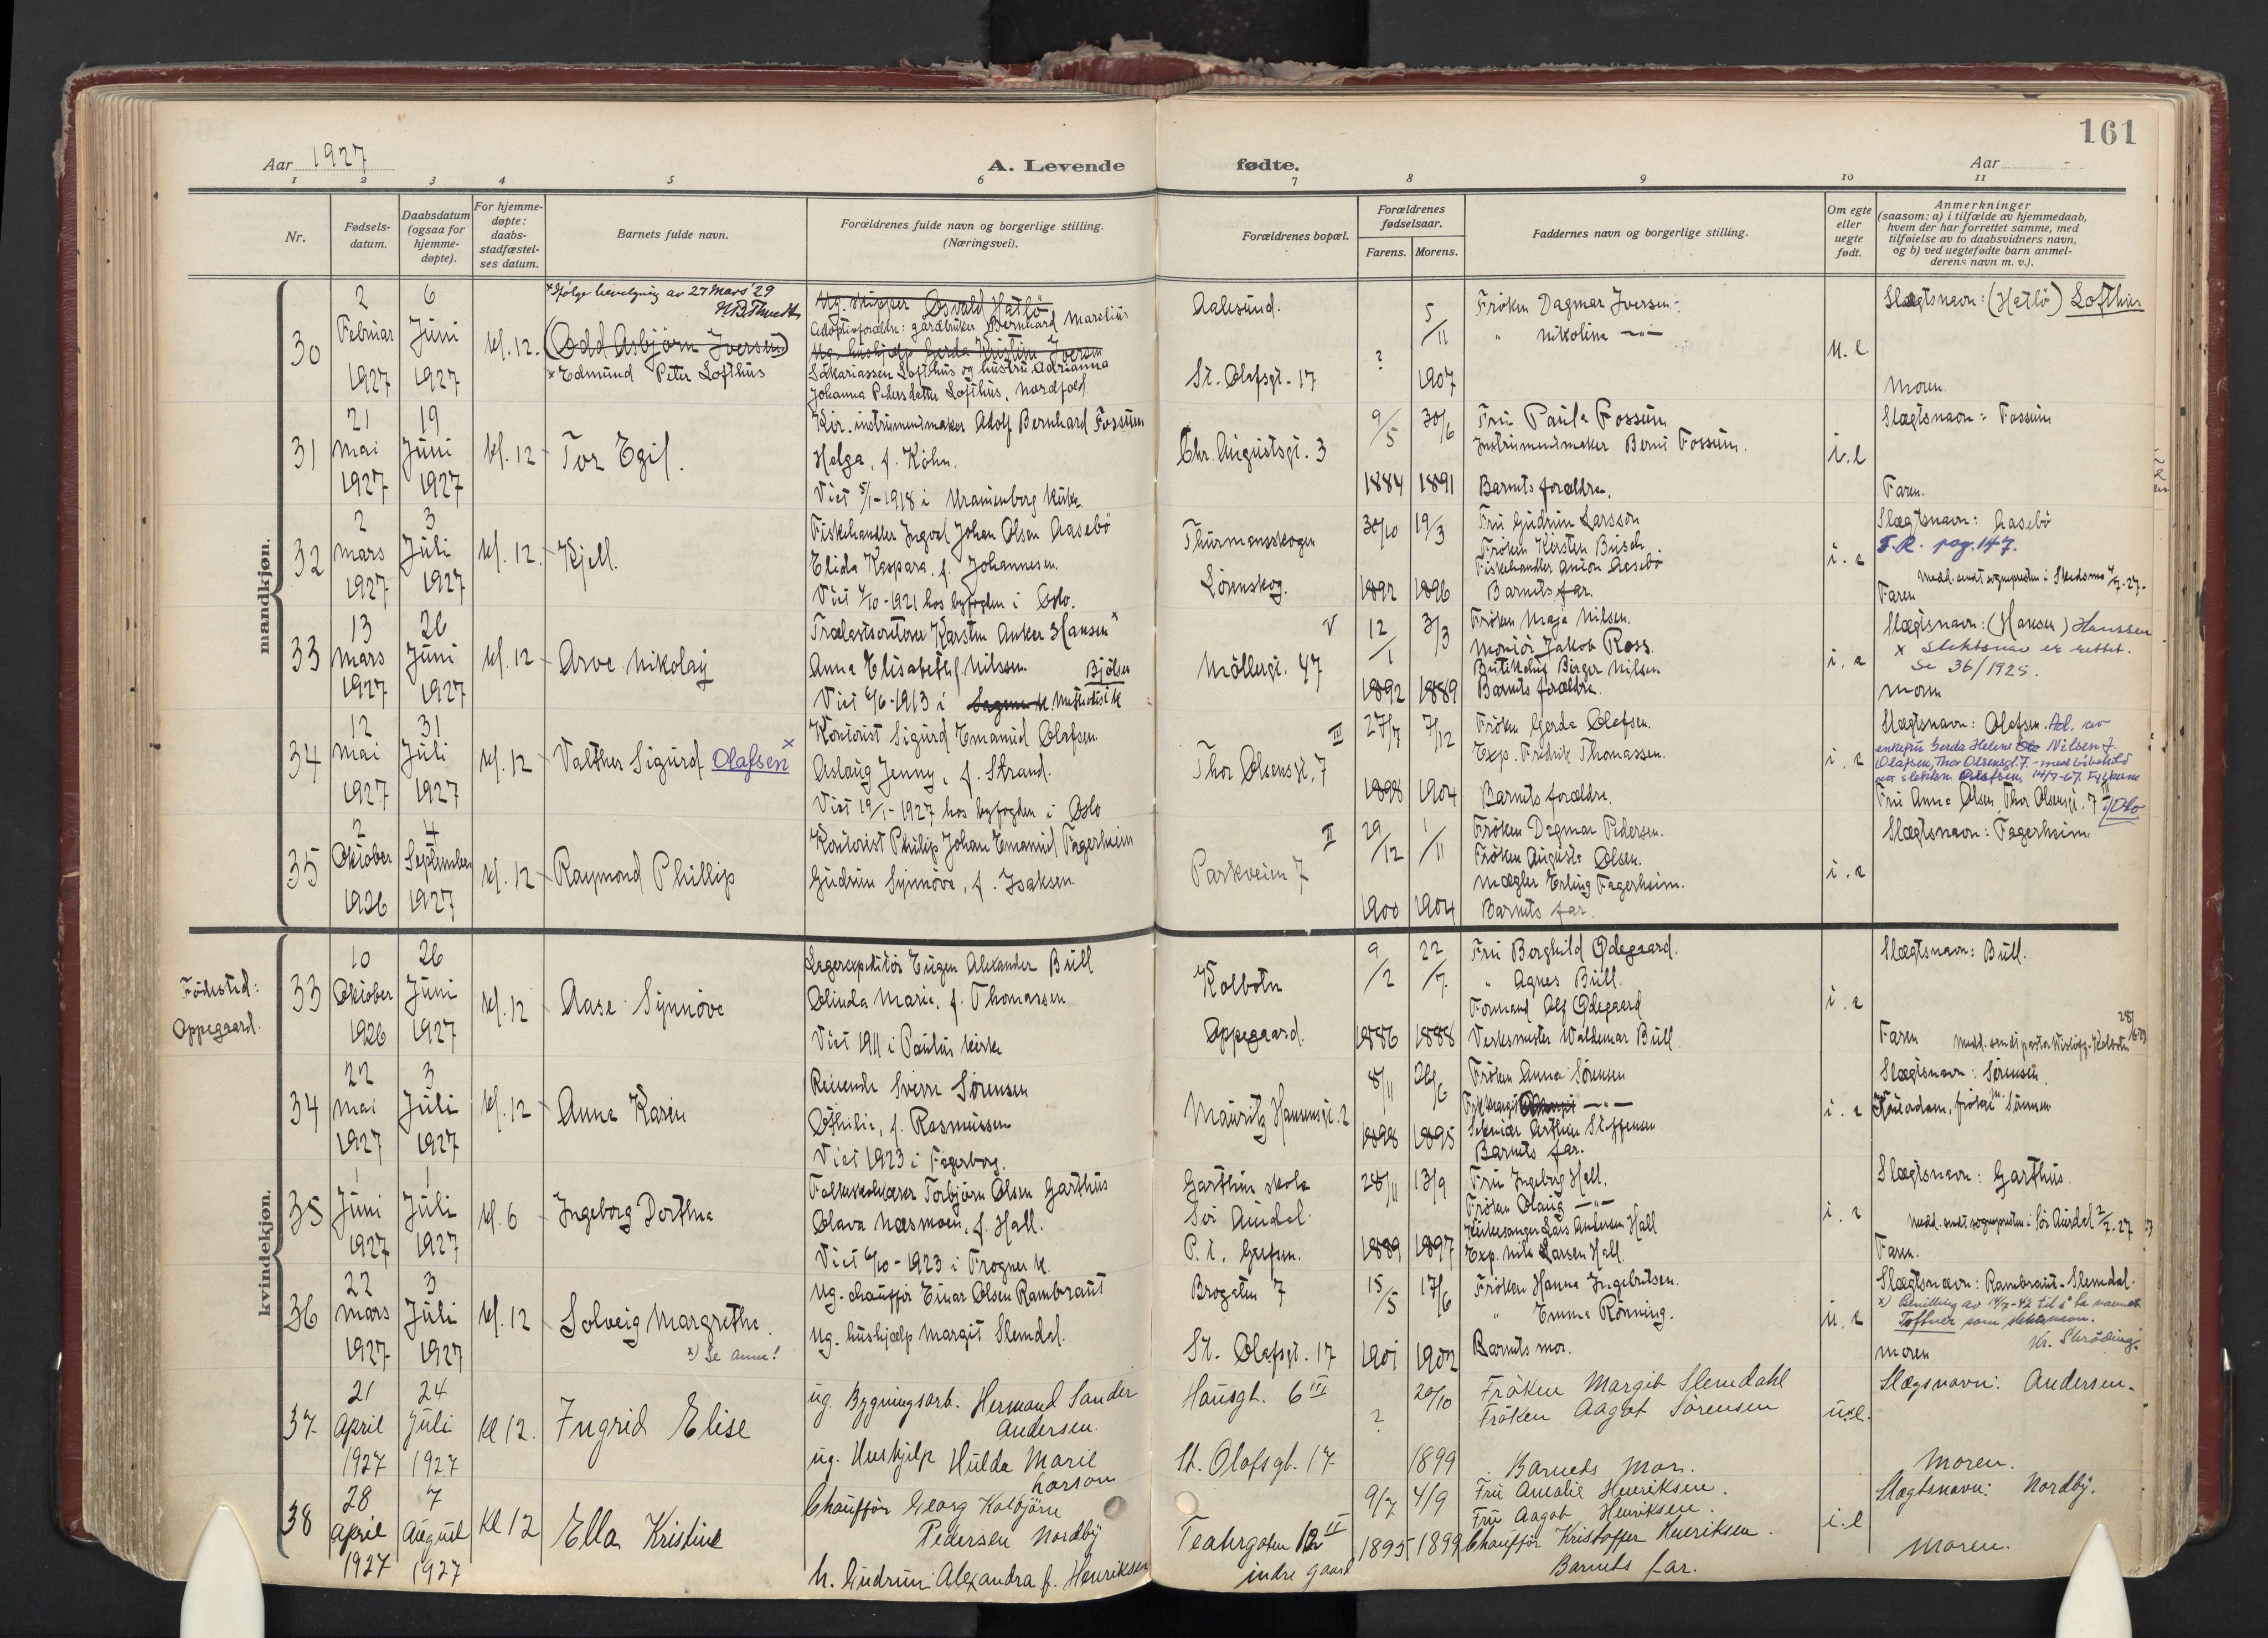 161
Aar 1927
A. Levende fødte.
Aar
1 2 3 4 5 6 7 8 9 10 11
Nr.
Fødsels-
datum.
Daabsdatum
(ogsaa for
hjemme-
døpte).
For hjemme-
døpte:
daabs-
stadfæstel-
ses datum.
Barnets fulde navn.
Forældrenes fulde navn og borgerlige stilling.
(Næringsvei).
Forældrenes bopæl.
Forældrenes
fødselsaar.
Farens. Morens.
Faddernes navn og borgerlige stilling.
Om egte
eller
uegte
født.
Anmerkninger
(saasom: a) i tilfælde av hjemmedaab,
hvem der har forrettet samme, med
tilføielse av to daabsvidners navn,
og b) ved uegtefødte barn anmel-
derens navn m. v.).
mandkjøn.
30
2
Februar
1927
6
Juni
1927
kl. 12.
x Ifølge bevilgning av 27 Mars '29
(Odd Asbjørn Iversen)
x Edmund Peter Lofthus
Ug. skipper Osvald Hatlö
Adoptivforældre: gårdbruker Bernhard Marelius
Ug. hushjælp Gerda Kristine Iversen
Sakariassen Lofthus og hustru Adrianna
Johanna Pedersdatter Lofthus, Nordfold
Aalesund.
St. Olafsgt. 17
?
5/11
1907
Frøken Dagmar Iversen
" Nikoline —"—
u. e
Slægtsnavn: (Hatlö) Lofthus
Moren.
31
21
Mai
1927
19
Juni
1927
kl. 12
Tor Egil.
Kir. instrumentmaker Adolf Bernhard Fossum
Helga, f. Köhn.
Viet 5/1-1918 i Uranienborg kirke
Chr. Augustsgt. 3
9/5
1884
30/6
1891
Fru Paula Fossum
Instrumentmaker Bernt Fossum.
Barnets forældre.
i. e
Slægtsnavn: Fossum
Faren.
32
2
Mars
1927
3
Juli
1927
kl. 12.
Kjell.
Fiskehandler Ingval Johan Olsen Aasebö
Elida Kaspara, f. Johannesen.
Viet 4/10-1921 hos byfogden i Oslo.
Thurmansskogen
Lörenskog.
30/10
1892
19/3
1896
Fru Gudrun Larsson
Frøken Kirsten Busch
Fiskehandler Anton Aasebö
Barnets far.
i. e
Slægtsnavn: Aasebö
F.R. pag. 147.
Medd. sendt sogneprsten i Skedsmo 4/7-27.
Faren
33
13
Mars
1927
26
Juni
1927
kl. 12
Arve Nikolay
Trælastsorterer Karsten Anker Hansen x
Anna Elisabeth f. Nilssen
Bjölsen
Viet 6/6-1913 i Sagene k. Metodistk
V
Möllergt. 47
12/1
1892
3/3
1889
Frøken Maja Nilsen.
Montör Jakob Ross.
Butikslus Birger Nilsen
Barnets forældre.
i. e
Slægtsnavn: (Hansen) Hanssen
x Slektsnav er rettet.
Se 36/1925.
Moren
34
12
Mai
1927
31
Juli
1927
kl. 12
Valther Sigurd Olafsen x
Kontorist Sigurd Emanuel Olafsen
Aslaug Jenny, f. Strand.
Viet 19/1-1927 hos byfogden i Oslo
III
Thor Olsensgt. 7
27/7
1898
7/12
1904
Frøken Gerda Olafsen.
Exp. Fredrik Thomassen.
Barnets forældre.
i. e
Slægtsnavn: Olafsen. Ad. av
enkefru Gerda Helene Nilsen f.
Olafsen, Thor Olsensgt. 7 - med bibehold
av slektsn. Olafsen, 14/7-67.
Fru Anna Olsen Thor Olsensgt. 7 III
Oslo
35
2
Oktober
1926
4
September
1927
kl. 12
Raymond Phillip
Kontorist Philip Johan Emanuel Fagerheim
Gudrun Synnöve, f. Isaksen.
II
Parkveien 7
29/12
1900
1/11
1904
Frøken Dagmar Pedersen.
Frøken Augusta Olsen.
Mægler Erling Fagerheim.
Barnets far.
i. e
Slægtsnavn: Fagerheim
kvindekjøn.
Födested:
Oppegaard.
33
10
Oktober
1926
26
Juni
1927
kl. 12
Aase Synnöve
Lagerexpeditör Eugen Alexander Bull
Olinda Marie, f. Thomassen
Viet 1911 i Paulus kirke
Kolbotn
Oppegaard.
9/2
1886
22/7
1888
Fru Borghild Ødegaard.
" Agnes Bull.
Formand Olf Ødegaard
Verksmester Waldemar Bull
i. e
Slægtsnavn: Bull.
Faren
34
22
Mai
1927
3
Juli
1927
kl. 12
Anna Karin
Reisende Sverre Sörensen
Othilie, f. Rasmussen
Viet 1923 i Fagerborg.
Mauritz Hansensgt. 2
8/11
1898
26/6
1895
Frøken Anna Sörensen
Frk Margit —"—
Snekker Arthur Steffensen
Barnets far.
i. e
Slægtsnavn: Sörensen.
35
1
Juni
1927
1
Juli
1927
kl. 6
Ingeborg Dorthea
Folkeskolelærer Torbjörn Olsen Garthus
Olava Næsmoen, f. Hall.
Viet 6/10-1923 i Frogner k.
Garthus skole
Sör Aurdal.
P. t. Grefsen.
28/11
1889
13/9
1897
Fru Ingeborg Hall.
Frøken Olaug —"—
Kirkesanger Lars Andersen Hall
Exp. Nils Larsen Hall
i. e
Slægtsnavn: Garthus.
Medd. sendt sogneprsten i Sör Aurdal 2/7-27
Faren.
36
22
Mars
1927
3
Juli
1927
kl. 12
Solveig Margrethe.
x) Se anm!
Ug. chaufför Einar Olsen Rambraut
Ug. hushjælp Margit Slemdal.
Brogaten 7
St. Olafsgt. 17
15/5
1901
17/6
1902
Frøken Hanna Ingebretsen.
" Emma Rönning.
Barnets mor.
u. e
Slægtsnavn: Rambraut - Slemdal.
x) Bevilling av 14/7-42 til å ta navnet
Toftner som slektsnavn.
Moren
37
21
April
1927
24
Juli
1927
Kl 12.
Ingrid Elise
ug. Bygningsarb. Hermand Sander
Andersen.
ug. Huskjelp Hulda Marie
Larson
Hausgt. 6 III
St. Olafsgt. 17
?
20/10
1899
Fröken Margit Slemdahl
Fröken Aagot Sörensen
Barnets Mor.
u. e.
Slægsnavn: Andersen.
Moren.
38
28
April
1927
7
August
1927
Kl 12
Ella Kristine
Chaufför Georg Kolbjörn
Pedersen Nordby
h. Gudrun Alexandra f. Henriksen
Teatergaten 12 II
indre gaard
9/7
1895
4/9
1899
Fru Amalie Henriksen.
Fru Aagot Henriksen.
Chaufför Kristoffer Henriksen.
Barnets far.
i. e
Slægtsnavn: Nordby.
Moren.